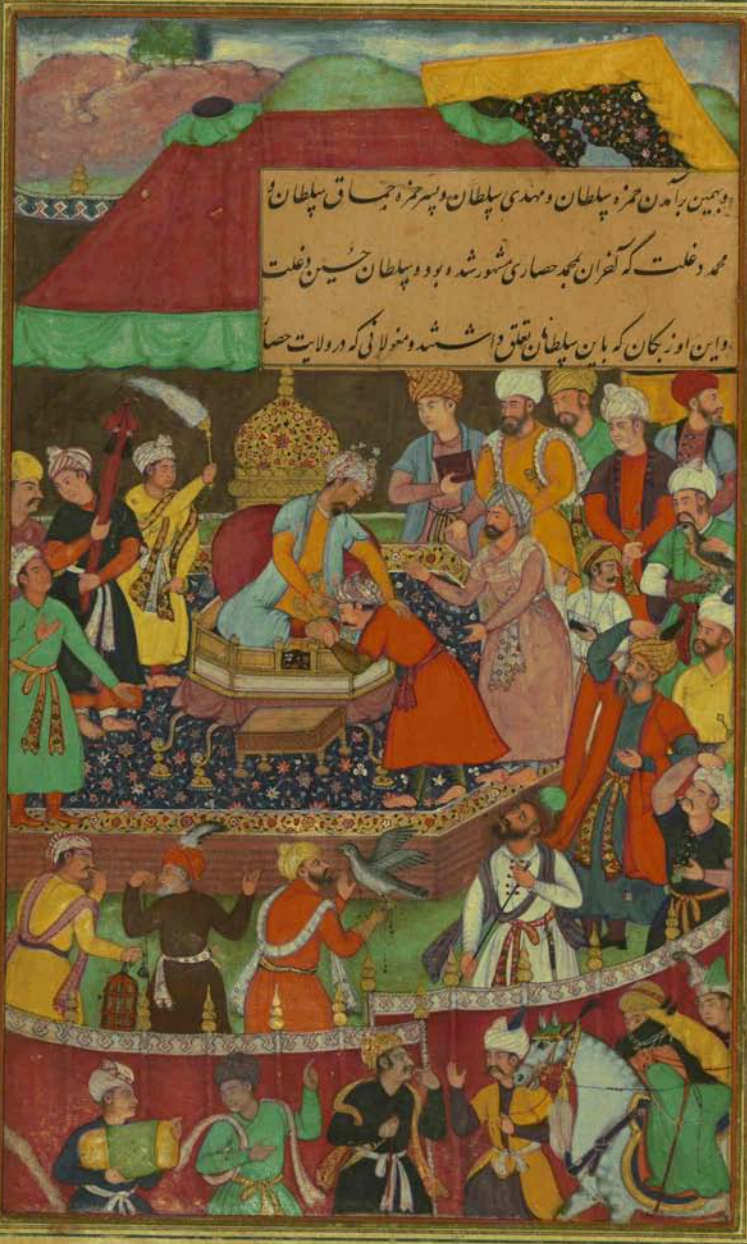 و بهمین برآمدن حمزه سلطان و مهدی سلطان و پسر حمزه سلطان و
محمد دغلت که آخران بمحمد حصاری مشهور شده بود و سلطان حسین دغلت
و این اوزبکان که باین سلطانان تعلق داشتند و مغولانی که در ولایت حصار